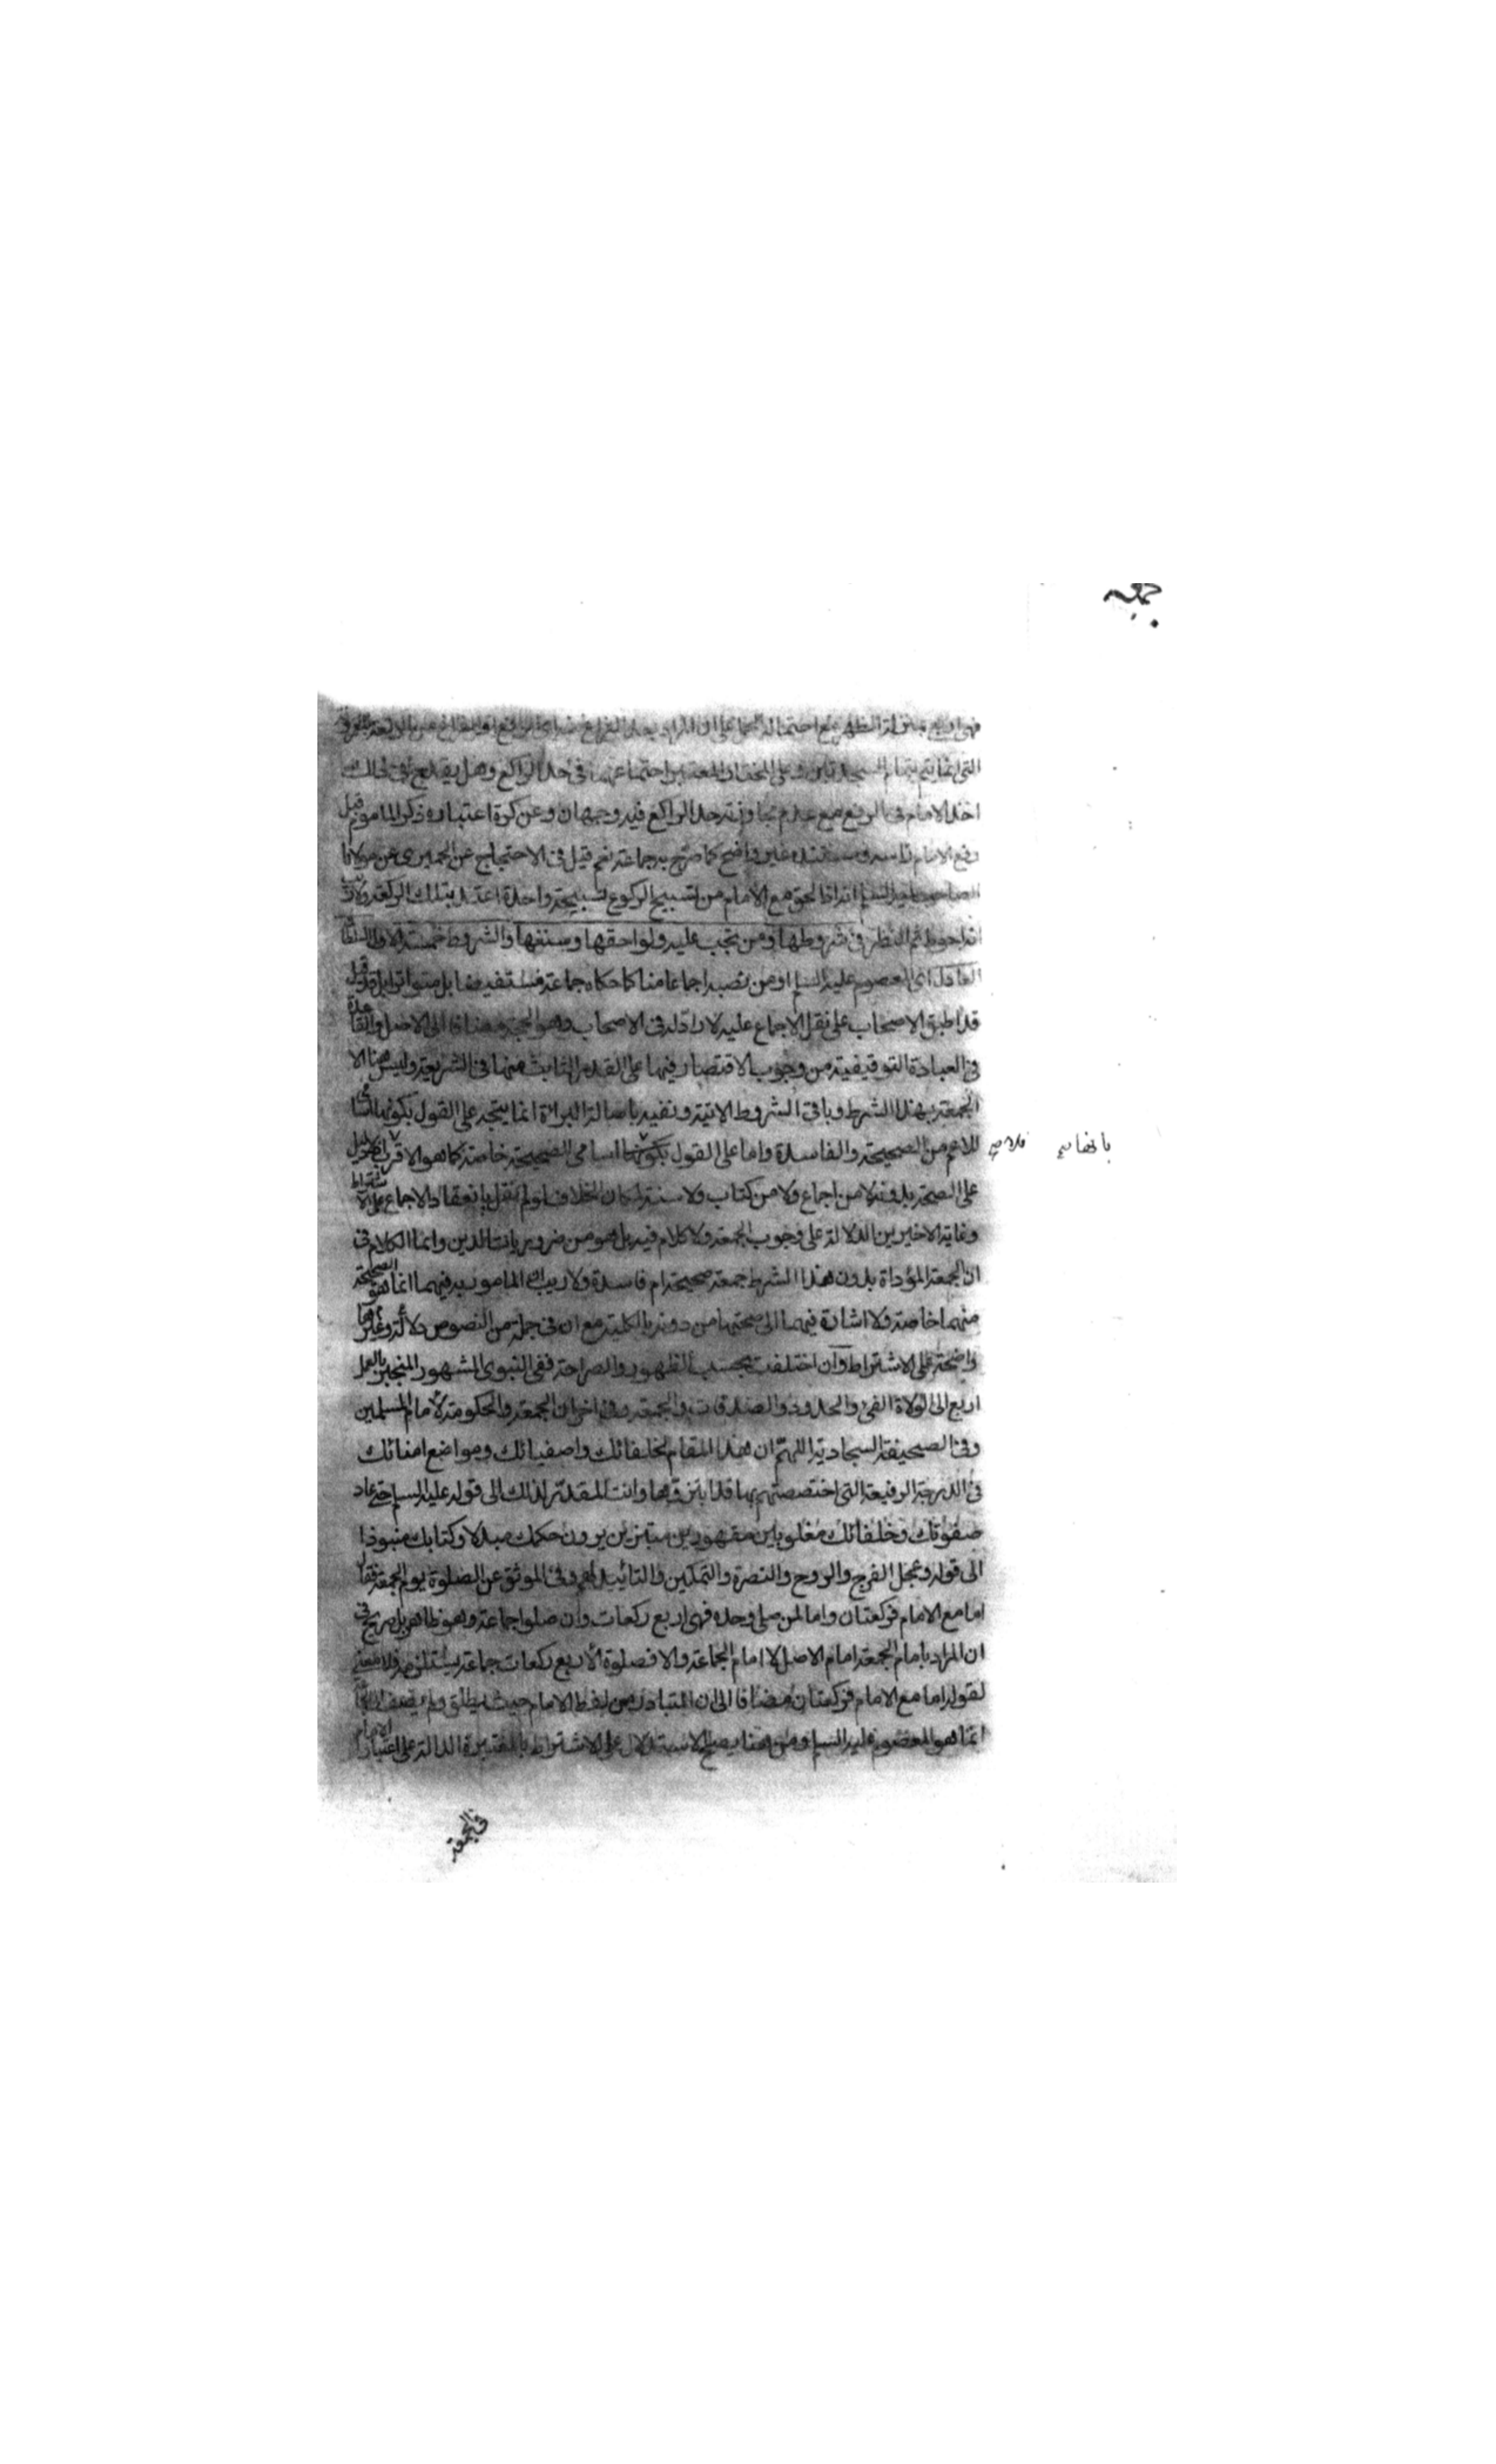 جمعه
فهي اربع بمنزلة الظهر مع احتماله الحمل على ان المراد بعد الفراغ
التي انما يتم بتمام السجدتين وعلى المختار المعتبر اجتماعهما في حد الراكع وهل يقدح في ذلك
اخذ الامام في الرفع مع عدم تجاوزه حد الراكع فيه وجهان وعن كرة اعتباره ذكر الماموم قبل
رفع الامام راسه ومستنده غير واضح كما صرح به جماعة نعم قيل في الاحتجاج عن الحميري عن مولانا
الصاحب عليه السلم انه اذا لحق مع الامام من تسبيح الركوع تسبيحة واحدة اعتد بتلك الركعة ولا ريب
انه احوط ثم النظر في شروطها ومن تجب عليه ولواحقها وسننها والشروط خمسة الاول السلطان
العادل اي المعصوم عليه السلم او من نصبه اجماعا منا كما حكاه جماعة مستفيضا بل متواترا بل قيل
قد اطبق الاصحاب على نقل الاجماع عليه لا راد له في الاصحاب وهو الحجة مضافا الى الاصل والقاعدة
في العبادة التوقيفية من وجوب الاقتصار فيها على القدر الثابت منها في الشريعة وليس هنا الا
الجمعة بهذا الشرط وباقي الشروط الاتية ونفيه باصالة البراءة انما يتجه على القول بكونها اسامي
للاعم من الصحيحة والفاسدة واما على القول بكونها اسامي الصحيحة خاصة كما هو الاقرب
بانها سم
على الصحة بدونه لا من اجماع ولا من كتاب ولا سنة لمكان الخلاف لو لم نقل بانعقاد الاجماع على الاشتراط
وغاية الاخيرين الدلالة على وجوب الجمعة ولا كلام فيه بل هو من ضروريات الدين وانما الكلام في
ان الجمعة المؤداة بدون هذا الشرط جمعة صحيحة ام فاسدة ولا ريب ان المامور به فيهما انما هو الصحيحة
منهما خاصة ولا اشارة فيهما الى صحتها من دونه بالكلية مع ان في جملة من النصوص دلالة
واضحة على الاشتراط وان اختلفت بحسب الظهور والصراحة ففي النبوي المشهور المنجبر بالعمل
اربع الى الولاة الفيء والحدود والصدقات والجمعة وفي اخر ان الجمعة والحكومة لامام المسلمين
وفي الصحيفة السجادية اللهم ان هذا المقام لخلفائك واصفيائك ومواضع امنائك
في الدرجة الرفيعة التي اختصصتهم بها قد ابتزوها وانت المقدر لذلك الى قوله عليه السلم حتى عاد
صفوتك وخلفائك مغلوبين مقهورين مبتزين يرون حكمك مبدلا وكتابك منبوذا
الى قوله وعجل الفرج والروح والنصرة والتمكين والتائيد لهم وفي الموثق عن الصلوة يوم الجمعة فقال
اما مع الامام فركعتان واما لمن صلى وحده فهي اربع ركعات وان صلوا جماعة وهو ظاهر بل صريح في
ان المراد بامام الجمعة امام الاصل لا امام الجماعة والا فصلوة الاربع ركعات جماعة يستلزمه فلا معنى
لقوله اما مع الامام فركعتان مضافا الى ان المتبادر من لفظ الامام حيث يطلق ولم يضف الى الجماعة
انما هو المعصوم عليه السلم ومن هنا يصح الاستدلال على الاشتراط بالمعتبرة الدالة على اعتبار الامام
في الجمعة